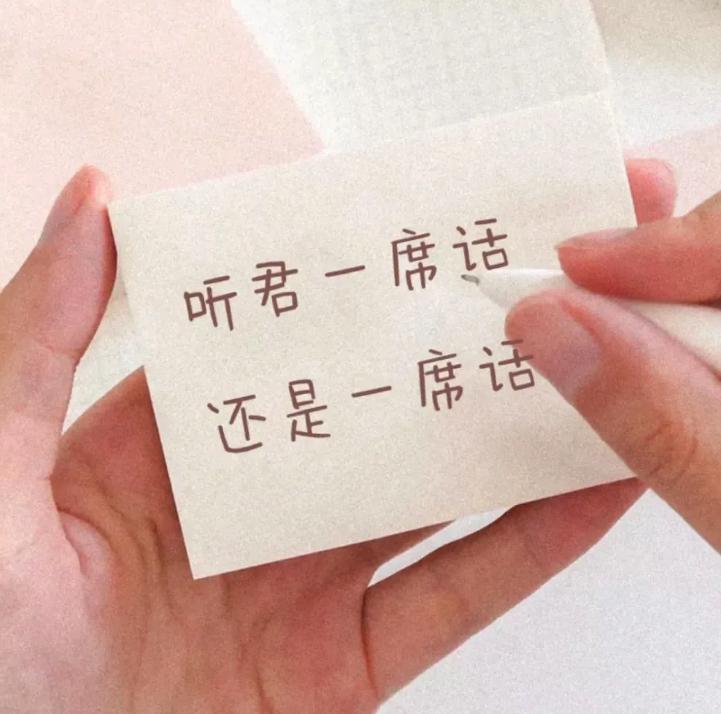 听君一席话
还是一席话